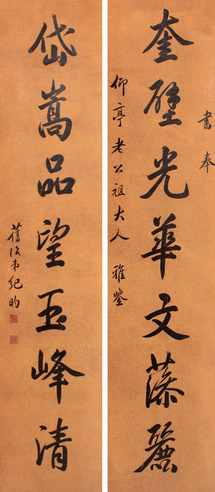 書奉
奎壁光華文藻麗
仰亭老公祖大人 雅鑒
岱嵩品望玉峰清
舊治弟紀昀